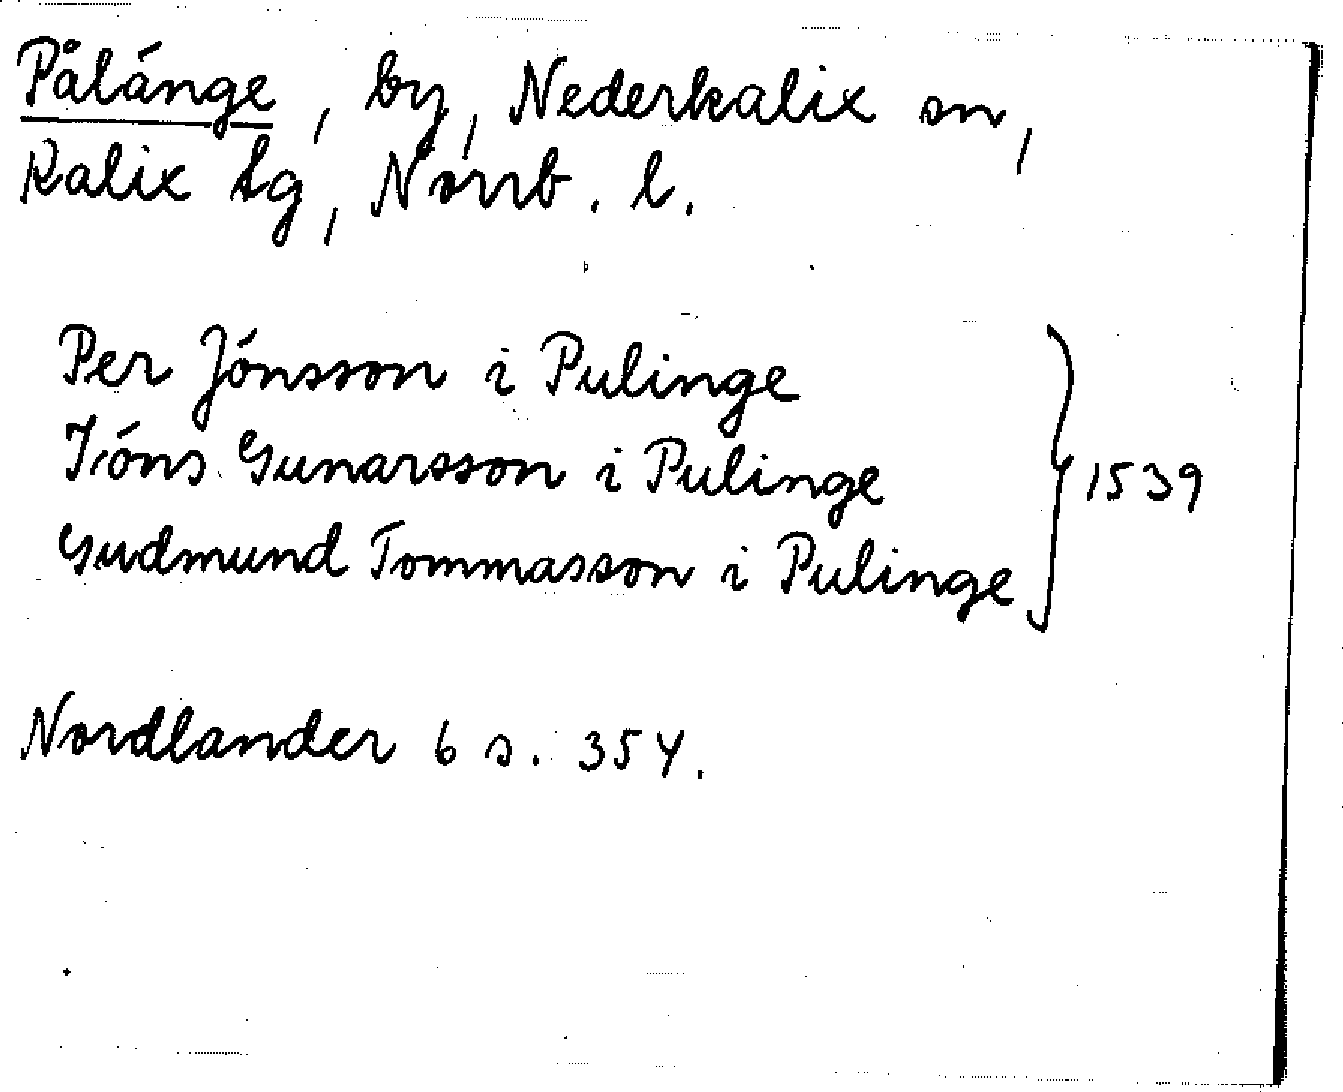 Pålänge, by, Nederkalix sn,
Kalix tg, Norrb. l.
Per Jönsson i Pulinge
Jöns Gunarsson i Pulinge
Gudmund Tommasson i Pulinge } 1539
Nordlander 6 s. 354.